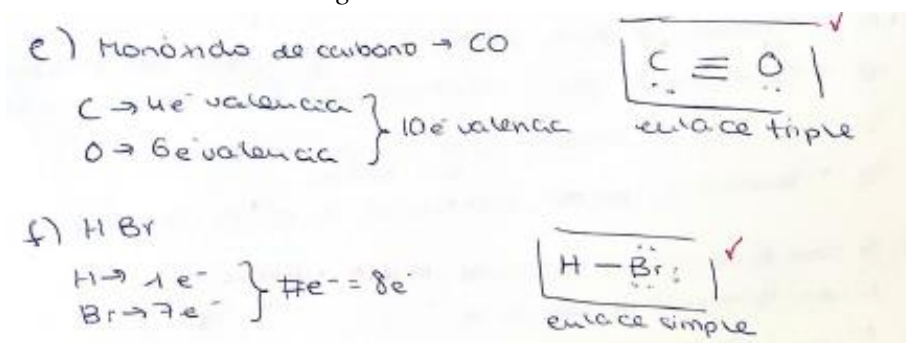 e) Monóxido de carbono → CO
C → 4e⁻ valencia
O → 6e⁻ valencia
} 10e⁻ valencia
C ≡ O
enlace triple
f) H Br
H → 1 e⁻
Br → 7e⁻
} #e⁻ = 8e⁻
H — Br
enlace simple